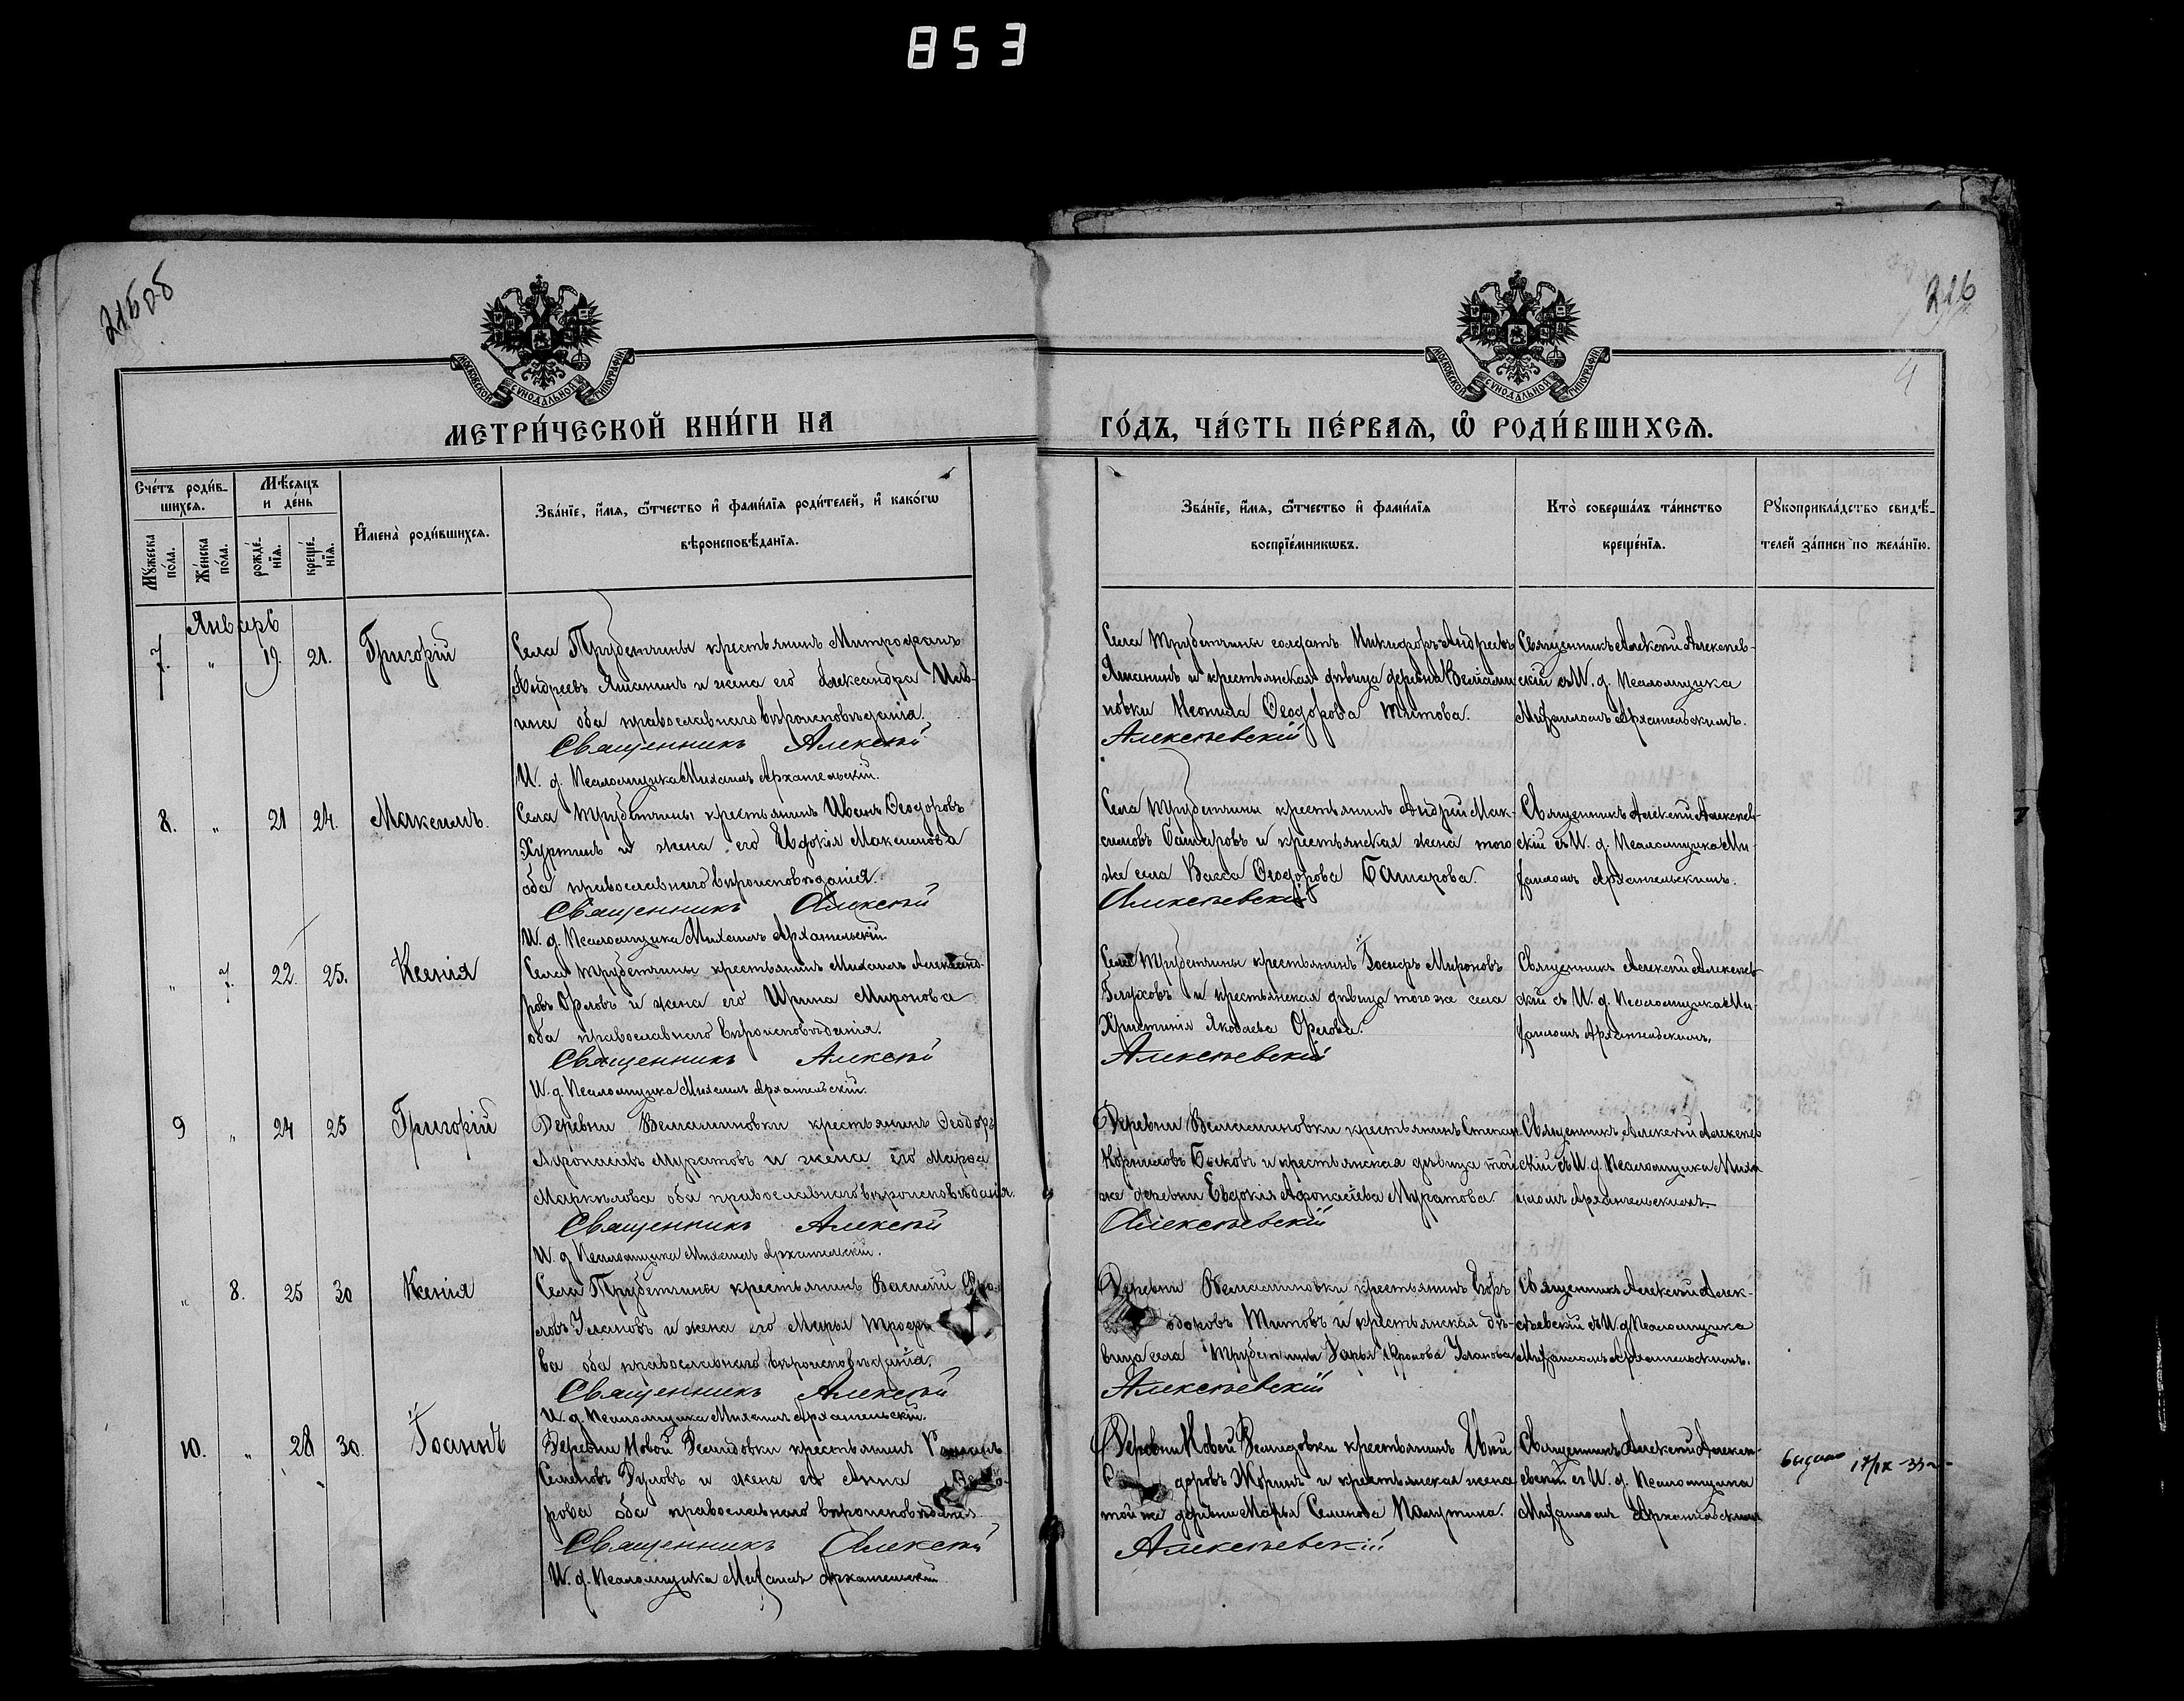 853
215 об
216
4
МОСКОВСКОЙ СУНОДАЛЬНОЙ ТИПОГРАФІИ
МОСКОВСКОЙ СУНОДАЛЬНОЙ ТИПОГРАФІИ
МЕТРИ́ЧЕСКОЙ КНИ́ГИ НА ГО́ДЪ, ЧА́СТЬ ПЕ́РВАѦ, Ѡ҆ РОДИ́ВШИХСѦ.
Сче́тъ роди́в-
шихсѧ.
Мѣ́сѧцъ
и де́нь
Мꙋ́жеска по́ла.
Же́нска по́ла.
рожде́-
нїѧ.
креще́-
нїѧ.
И҆мена̀ роди́вшихсѧ.
Зва́нїе, и҆́мѧ, ѻ҆́тчество и҆ фами́лїѧ роди́телей, и҆ како́гѡ
вѣроисповѣ́данїѧ.
Зва́нїе, и҆́мѧ, ѻ҆́тчество и҆ фами́лїѧ
воспрїе́мникѡвъ.
Кто̀ соверша́лъ та́инство
креще́нїѧ.
Рꙋкоприкла́дство свидѣ́-
телей за́писи по жела́нїю.
Январь
7. " 19. 21. Григорій
Села Трубетчины крестьянинъ Митрофанъ
Андреевъ Яманинъ и жена его Александра Иль-
ина оба православнаго вѣроисповѣданія.
Священникъ Алексѣй
И. д. Псаломщика Михаилъ Архангельскій.
Села Трубетчины солдатъ Никифоръ Андреевъ
Яманинъ и крестьянская дѣвица деревни Веліами
новки Неонила Ѳеодорова Титова.
Алексѣевскій
Священникъ Алексѣй Алексѣев-
скій съ И. д. Псаломщика
Михаиломъ Архангельскимъ.
8. " 21 24. Максимъ.
Села Трубетчины крестьянинъ Иванъ Ѳеодоровъ
Хуртинъ и жена его Евдокія Максимова
оба православнаго вѣроисповѣданія.
Священникъ Алексѣй
И. д. Псаломщика Михаилъ Архангельскій
Села Трубетчины крестьянинъ Андрей Мак-
симовъ Башаровъ и крестьянская жена того
же села Васса Ѳеодорова Башарова.
Алексѣевскій
Священникъ Алексѣй Алексѣев-
скій съ И. д. Псаломщика Ми-
хаиломъ Архангельскимъ.
" 7. 22. 25. Ксенія
Села Трубетчины крестьянинъ Михаилъ Александ-
ровъ Орловъ и жена его Ирина Миронова
оба православнаго вѣроисповѣданія.
Священникъ Алексѣй
И. д. Псаломщика Михаилъ Архангельскій.
Села Трубетчины крестьянинъ Іосифъ Мироновъ
и крестьянская дѣвица того же села
Христинія Яковлева Орлова.
Алексѣевскій
Священникъ Алексѣй Алексѣев-
скій съ И. д. Псаломщика Ми-
хаиломъ Архангельскимъ.
9 " 24 25 Григорій
Деревни Велиаминовки крестьянинъ Ѳеодоръ
Афонасьевъ Муратовъ и жена его Марѳа
Маркелова оба православнаго вѣроисповѣданія.
Священникъ Алексѣй
И. д. Псаломщика Михаилъ Архангельскій.
Деревни Велиаминовки крестьянинъ Степанъ
Корниловъ Быковъ и крестьянская дѣвица той
же деревни Евдокія Афонасіева Муратова
Алексѣевскій
Священникъ Алексѣй Алексѣев
скій съ И. д. Псаломщика Миха
иломъ Архангельскимъ.
" 8. 25 30 Ксенія
Села Трубетчины крестьянинъ Василій Фро-
ловъ Улановъ и жена его Марья Трофи
ва оба православнаго вѣроисповѣданія.
Священникъ Алексѣй
И. д. Псаломщика Михаилъ Архангельскій.
Деревни Велиаминовки крестьянинъ Егоръ
одоровъ Титовъ и крестьянская дѣ-
вица села Трубетчины Дарья Фролова Уланова
Алексѣевскій
Священникъ Алексѣй Алек-
сѣевскій съ И. д. Псаломщика
Михаиломъ Архангельскимъ.
10. " 28 30. Іоаннъ
Деревни Новой Демидовки крестьянинъ
Семеновъ Дуловъ и жена его Анна Ѳеодо-
рова оба православнаго вѣроисповѣданія
Священникъ Алексѣй
И. д. Псаломщика Михаилъ Архангельскій
Деревни Новой Демидовки крестьянинъ
доровъ Жоринъ и крестьянская жена
той же деревни Марья Семенова Палутина.
Алексѣевскій
Священникъ Алексѣй Алексѣ-
евскій съ И. д. Псаломщика
Михаиломъ Архангельскимъ
выдано 17/IX-33 г.